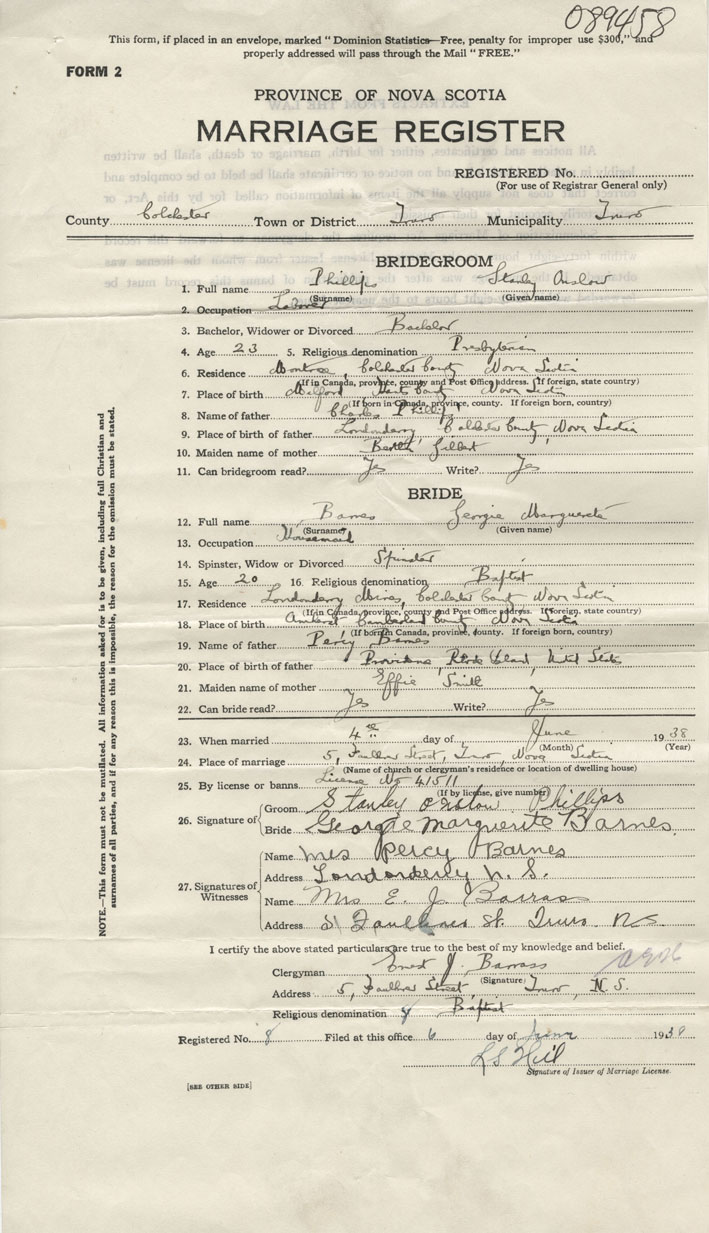 089458
This form, if placed in an envelope, marked "Dominion Statistics—Free, penalty for improper use $300," and
properly addressed will pass through the Mail "FREE."
FORM 2
PROVINCE OF NOVA SCOTIA
MARRIAGE REGISTER
REGISTERED No.
(For use of Registrar General only)
County Colchester Town or District Truro Municipality Truro
BRIDEGROOM
1. Full name Phillips Stanly Onslow
(Surname) (Given name)
2. Occupation Laborer
3. Bachelor, Widower or Divorced Bachelor
4. Age 23 5. Religious denomination Presbyterian
6. Residence Montrose, Colchester County Nova Scotia
(If in Canada, province, county and Post Office address. If foreign, state country)
7. Place of birth Milford Hants County Nova Scotia
(If born in Canada, province, county. If foreign born, country)
8. Name of father Charles Phillips
9. Place of father Londonderry, Colchester County, Nova Scotia
10. Maiden name of mother Bertha Gilbert
11. Can bridegroom read? Yes Write? Yes
BRIDE
12. Full name Barnes Georgie Marguerete
(Surname) (Given name)
13. Occupation Housemaid
14. Spinster, Widow or Divorced Spinster
15. Age 20 16. Religious denomination Baptist
17. Residence Londonderry Mines, Colchester County Nova Scotia
(If in Canada, province, county and Post Office address. If foreign, state country)
18. Place of birth Amherst Cumberland County Nova Scotia
(If born in Canada, province, county. If foreign born, country)
19. Name of father Percy Barnes
20. Place of birth of father Providence, Rhode Island, United States
21. Maiden name of mother Effie Smith
22. Can bride read? Yes Write? Yes
23. When married 4th day of June 1938
(Month) (Year)
24. Place of marriage 5, Faulkner Street, Truro, Nova Scotia
(Name of church or clergyman's residence or location of dwelling house)
25. By license or banns License No 41511
(If by license, give number)
26. Signature of Groom Stanley Onslow Phillips
Bride Georgie Marguerite Barnes
27. Signatures of Witnesses
Name Mrs Percy Barnes
Address Londonderly N. S.
Name Mrs E. J. Barrass
Address 5 Faulkner St. Truro N.S.
I certify the above stated particulars are true to the best of my knowledge and belief.
Clergyman Ernest J. Barrass
(Signature)
Address 5, Faulkner Street Truro, N.S.
Religious denomination Baptist
Registered No. 8 Filed at this office 6 day of June 1938
Signature of Issuer of Marriage License
[SEE OTHER SIDE]
NOTE.—This form must not be mutilated. All information asked for is to be given, including full Christian and
surnames of all parties, and if for any reason this is impossible, the reason for the omission must be stated.